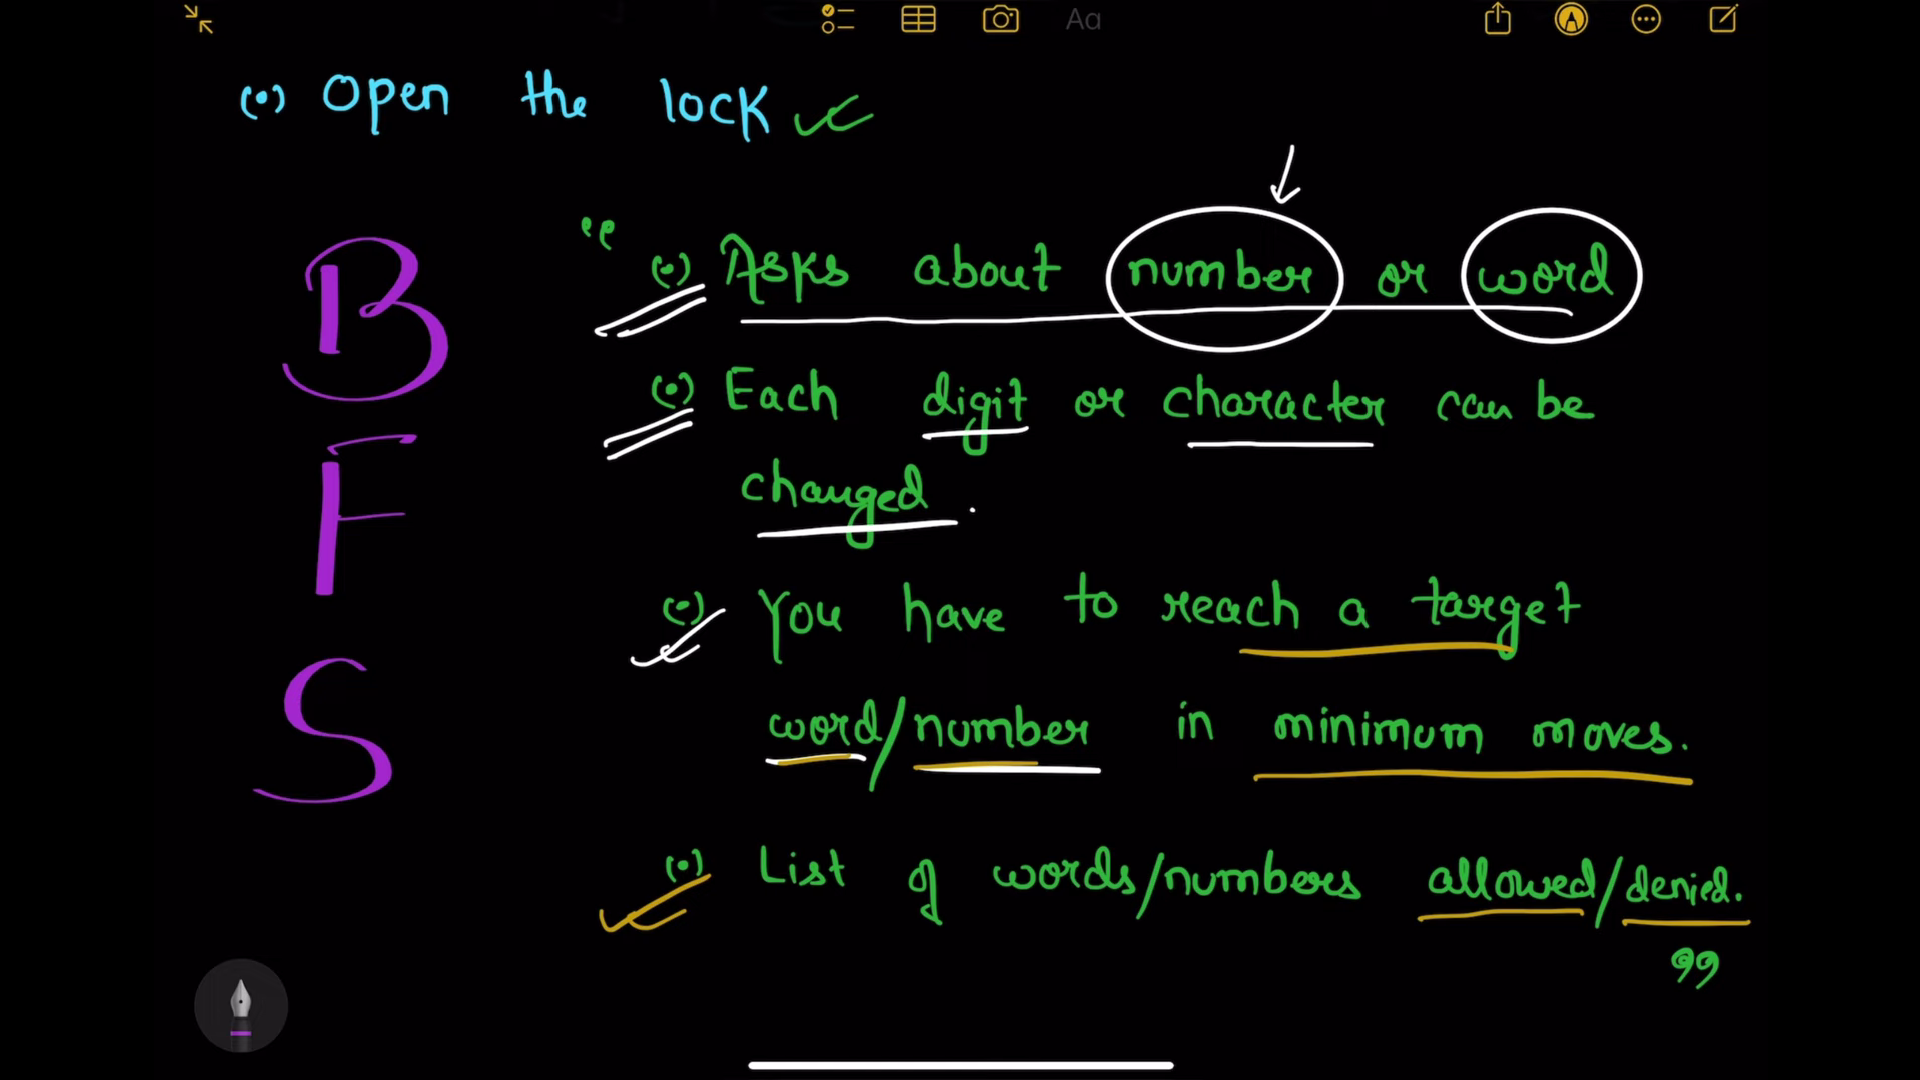 Aa
(•) Open the lock
B
F
S
“ (•) Asks about number or word
(•) Each digit or character can be
changed.
(•) You have to reach a target
word/number in minimum moves.
(•) List of words/numbers allowed/denied.
”